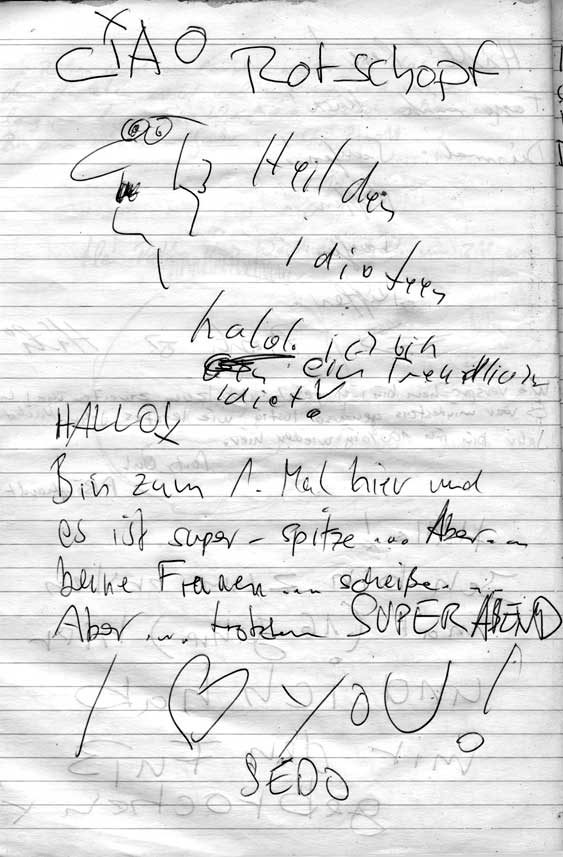 CIAO Rotschopf
Heil den
Idioteen
halol. ich bin
ein freundlicher
Idiot!
HALLO
Bin zum 1. Mal hier und
es ist super-spitze... Aber...
keine Frauen... scheiße...
Aber... trotzdem SUPER ABEND
I ♡ YOU!
SEDO